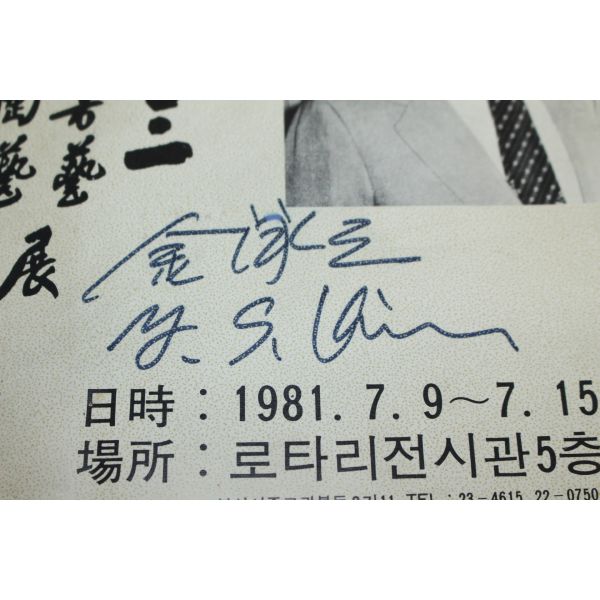 芳藝
陶藝
展
金
Y. S. Kim
日時 : 1981. 7. 9~7. 15
場所 : 로타리전시관5층
TEL : 23-4615, 22-0750